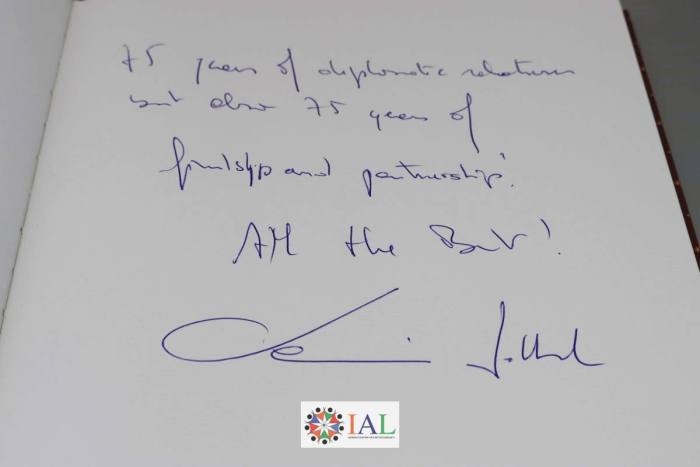 75 years of diplomatic relations
but also 75 years of
friendship and partnership!
All the Best!
IAL